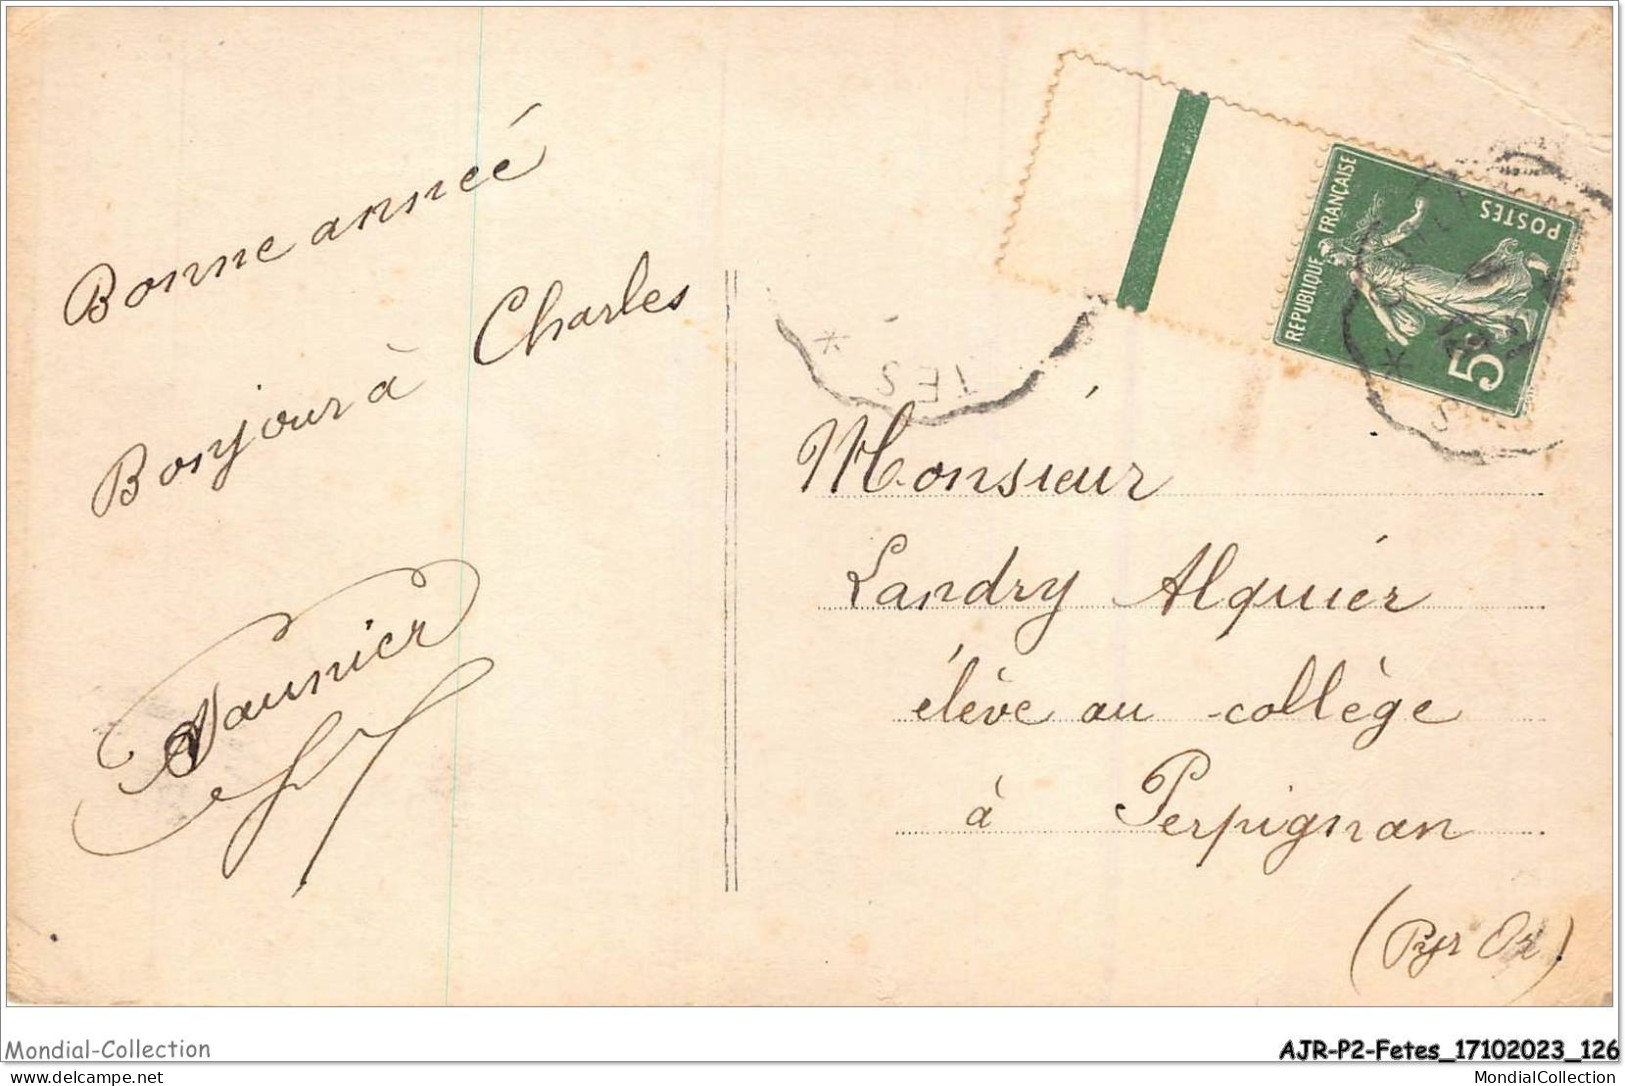 Bonne année
Bonjour à Charles
Monsieur
Landry Alquier
élève au collège
à Perpignan
(Pyr Or)
REPUBLIQUE FRANÇAISE
POSTES
5
TES
Mondial-Collection
AJR-P2-Fetes_17102023_126
www.delcampe.net
MondialCollection